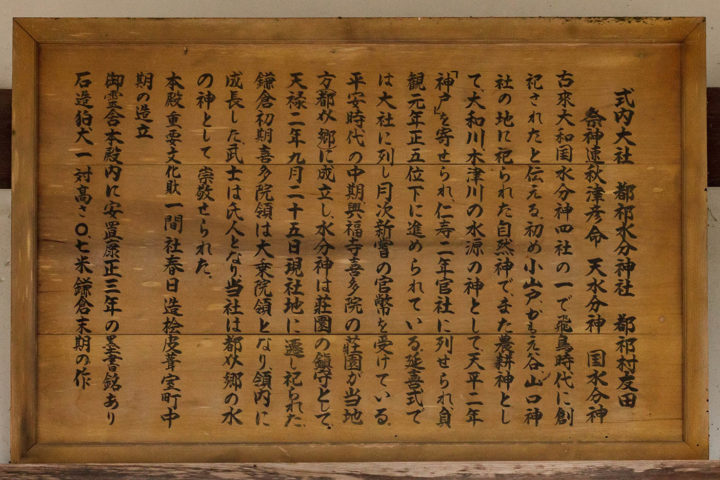 式内大社　都祁水分神社　都祁村友田
祭神速秋津彦命　天水分神　国水分神
古来大和国水分神四社の一で飛鳥時代に創
祀されたと伝える。初め小山戸がもえ谷山口神
社の地に祀られた自然神でまた農耕神とし
て、大和川、木津川の水源の神として天平二年
「神戸」を寄せられ、仁寿二年官社に列せられ貞
観元年正五位下に進められている。延喜式で
は大社に列し月次新嘗の官幣を受けている。
平安時代の中期興福寺喜多院の荘園が当地
方都介郷に成立し、水分神は荘園の鎮守として、
天禄二年九月二十五日現社地に遷し祀られた。
鎌倉初期喜多院領は大乗院領となり領内に
成長した武士は氏人となり、当社は都介郷の水
の神として崇敬せられた。
本殿　重要文化財　一間社春日造桧皮葺室町中
期の造立
御霊舎　本殿内に安置　康正三年の墨書銘あり
石造狛犬一対高さ〇.七米鎌倉末期の作